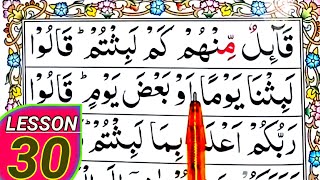 قَآئِلٌ مِّنْهُمْ كَمْ لَبِثْتُمْ ؕ قَالُوْا
لَبِثْنَا يَوْمًا اَوْ بَعْضَ يَوْمٍ ؕ قَالُوْا
رَبُّكُمْ اَعْلَمُ بِمَا لَبِثْتُمْ ؕ
LESSON
30